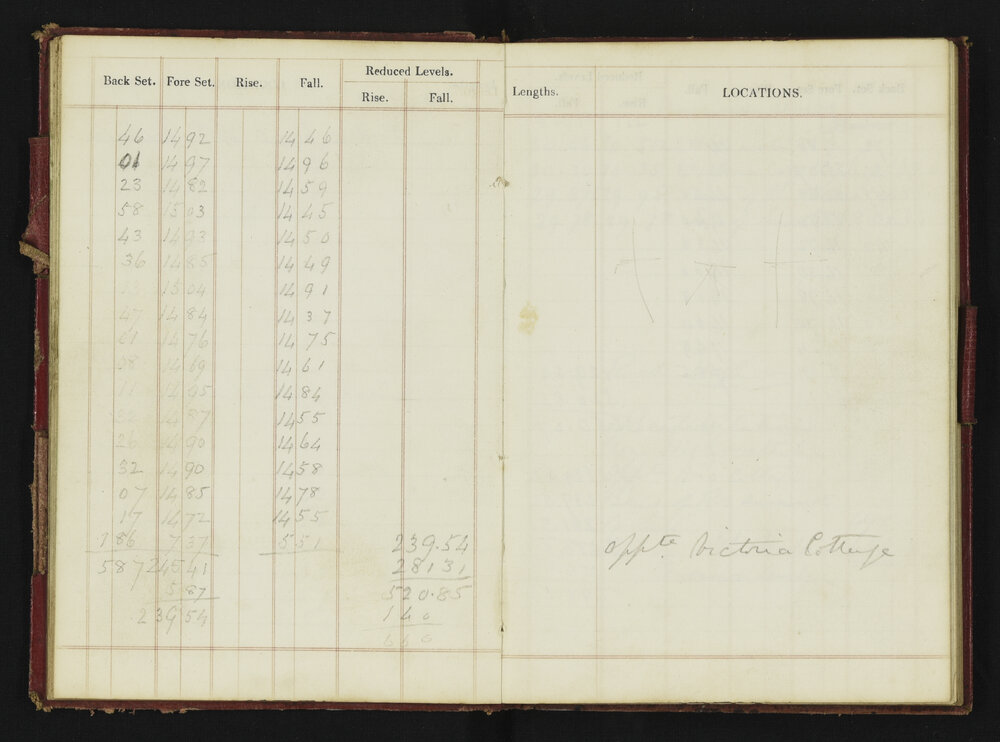 Back Set. Fore Set. Rise. Fall. Reduced Levels. Rise. Fall.
Lengths. LOCATIONS.
46 1492 1446
01 1497 1496
23 1482 1459
58 1503 1445
43 1493 1450
36 1485 1449
13 1504 1491
47 1484 1437
01 1476 1475
08 1469 1461
11 1495 1484
32 1487 1455
26 1490 1464
32 1490 1458
07 1485 1478
17 1472 1455
186 737 551 239.54
587 24541 281.31
587 520.85
23954 140
660
oppte Victoria Cottage